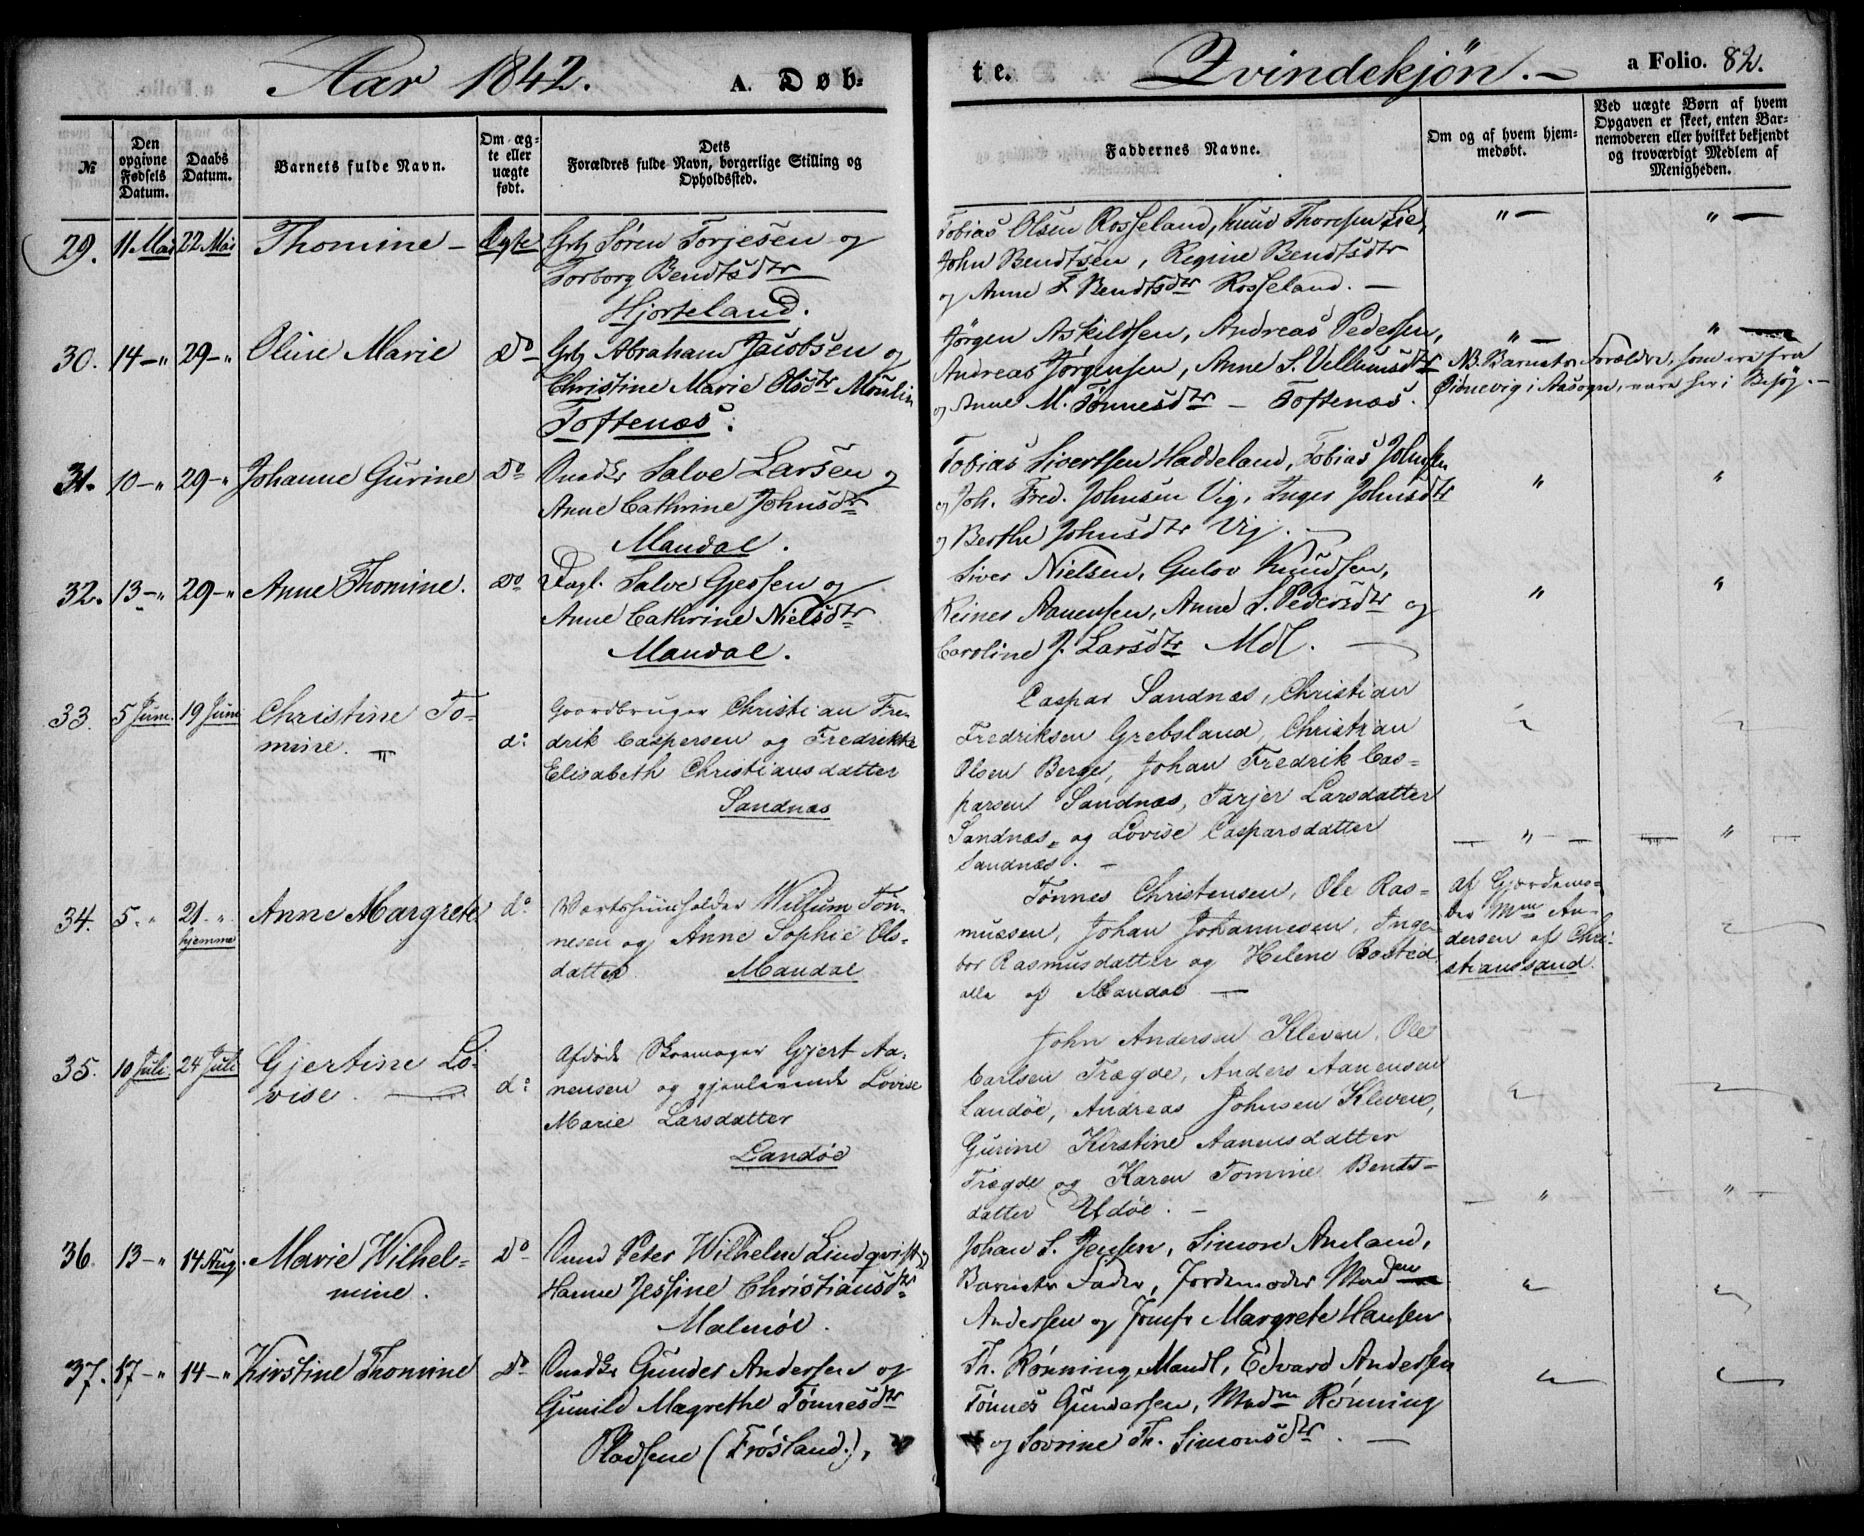 Aar 1842. A. Døb- te. Qvindekjøn. a Folio. 82.
№
Den opgivne Fødsels Datum.
Daabs Datum.
Barnets fulde Navn.
Om ægte eller uægte født.
Dets Forældres fulde Navn, borgerlige Stilling og Opholdssted.
Faddernes Navne.
Om og af hvem hjemmedøbt.
Ved uægte Børn af hvem Opgaven er skeet, enten Barnemoderen eller hvilket bekjendt og troværdigt Medlem af Menigheden.
29. 11 Mai 22 Mai Thomine – Ægte Grbr Søren Torjesen og
Torborg Bendtsdtr
Hjorteland.
Tobias Olsen Rosseland, Knud Thoresen Lie,
John Bendtsen, Regine Bendtsdtr
og Anne T Bendtsdtr Rosseland. –
" –
" –
30. 14 – " 29 – " Oline Marie Do Grbr Abraham Jacobsen og
Christine Marie Olsdtr Moulin
Toftenæs.
Jørgen Askildsen, Andreas Pedersen,
Andreas Jørgensen, Anne S. Vellumsdtr
og Anne M. Tønnesdtr – Toftenæs.
" –
" –
NB. Barnets Forældre, som ere fra
Øidnevig i Aasogn, vare her i Besøg. –
31. 10 – " 29 – " Johanne Gurine Do Salve Larsen og
Anne Cathrine Johnsdtr
Mandal.
Tobias Sivertsen Haddeland, Tobias Johnsen
og Joh. Fred. Johnsen Vig, Inger Johnsdtr
og Berthe Johnsdtr Vig.
"
"
32. 13 – " 29 – " Anne Thomine. Do Dagl. Salve Gjessen og
Anne Cathrine Nielsdtr
Mandal.
Siver Nielsen, Gulov Knudsen,
Reines Aanensen, Anne S. Pedersdtr og
Caroline J. Larsdtr Mdl.
"
"
33. 5 Juni. 19 Juni Christine To-
mine. do Gaardbruger Christian Fre-
drik Caspersen og Fredrikke
Elisabeth Christiansdatter
Sandnæs
Caspar Sandnæs, Christian
Fredriksen Grebsland, Christian
Olsen Berge, Johan Fredrik Cas-
parsen Sandnæs, Tarjer Larsdatter
Sandnæs, og Lovise Casparsdatter
Sandnæs. –
– " –
– " –
34. 5. " 21. "
hjemme
Anne Margrete do Værtshuusholder Willum Tøn-
nesen og Anne Sophie Ols-
datter Mandal
Tønnes Christensen, Ole Ras-
mussen, Johan Johannesen, Inge-
bor Rasmusdatter og Helene Bosted
alle af Mandal –
af Gjordemo-
der Mm An-
dersen af Chri-
stianssand.
35. 10 Juli. 24 Juli Gjertine Lo-
vise. do Afdøde Skomager Gjert Aa-
nensen og gjenlevende Lovise
Marie Larsdatter
Landøe
John Andersen Kleven, Ole
Carlsen Trægde, Anders Aanensen
Landøe, Andreas Johnsen Kleven,
Gurine Kirstine Aanensdatter
Trægde og Karen Tomine Bents-
datter Udøe. –
– "
– " –
36. 13 – " 14 Aug. Marie Wilhel-
mine. Do Peter Wilhelm Lindqvist og
Hanne Jessine Christiansdtr
Malmøe.
Johan S. Jensen, Simon Ameland,
Barnets Fader, Jordemoder Madm
Andersen og Jomfr Margrete Hansen
37. 17 – " 14 – " Kirstine Thomine Do Gunder Andersen og
Gunild Magrethe Tønnesdtr
Pladsene (Frøsland.),
Th. Rønning Mandl, Edvard Andersen
Tønnes Gundersen, Madm Rønning
og Sovrine Th. Simonsdtr. –